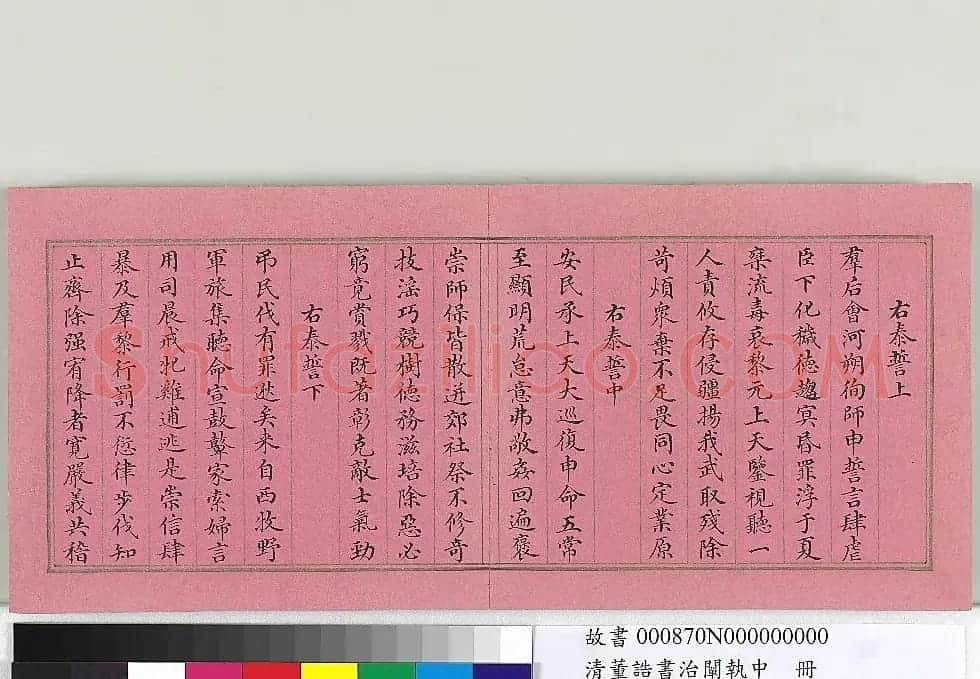 右泰誓上
羣后會河朔徇師申誓言肆虐
臣下化穢德趨冥昏罪浮于夏
棄流毒哀黎元上天鑒視聽一
人責攸存侵疆揚我武取殘除
苛煩眾棄不足畏同心定業原
右泰誓中
安民承上天大巡復申命五常
至顯明荒怠意弗敬姦回遍褒
崇師保皆散迸郊社祭不修奇
技淫巧競樹德務滋培除惡必
窮竟賞戮既著彰克敵士氣勁
右泰誓下
弔民伐有罪逖矣来自西牧野
軍旅集聽命宣鼓鼙家索婦言
用司晨戒牝雞逋逃是崇信肆
暴及羣黎行罰不愆律步伐知
止齊除强宥降者寬嚴義共稽
Shufaziliao.com
故書 000870N000000000
清董誥書治闡執中 冊